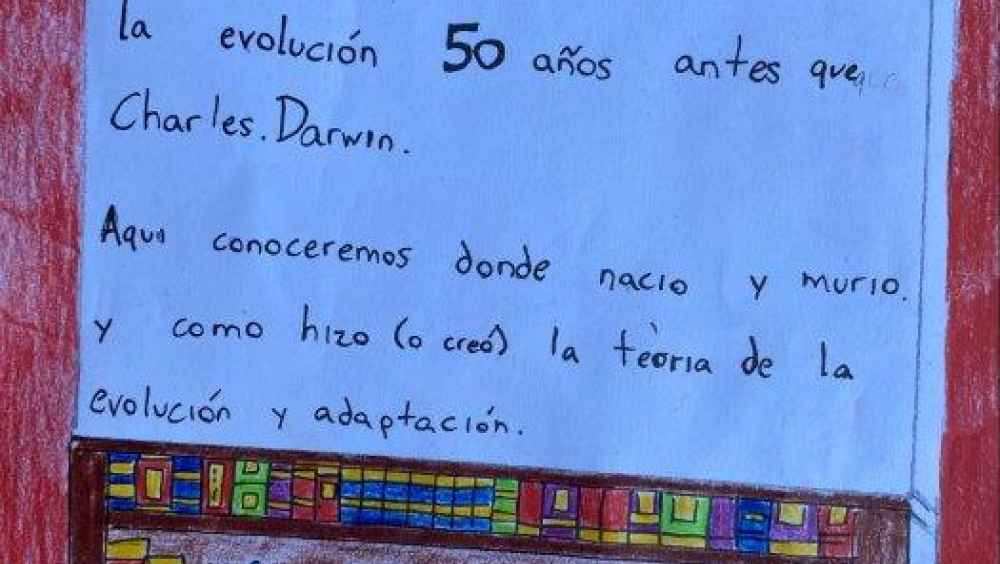 la evolución 50 años antes que
Charles. Darwin.
Aqui conoceremos donde nacio y murio.
y como hizo (o creó) la teoria de la
evolución y adaptación.